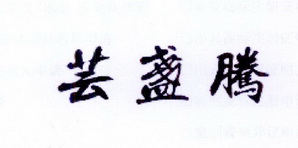 芸盏腾